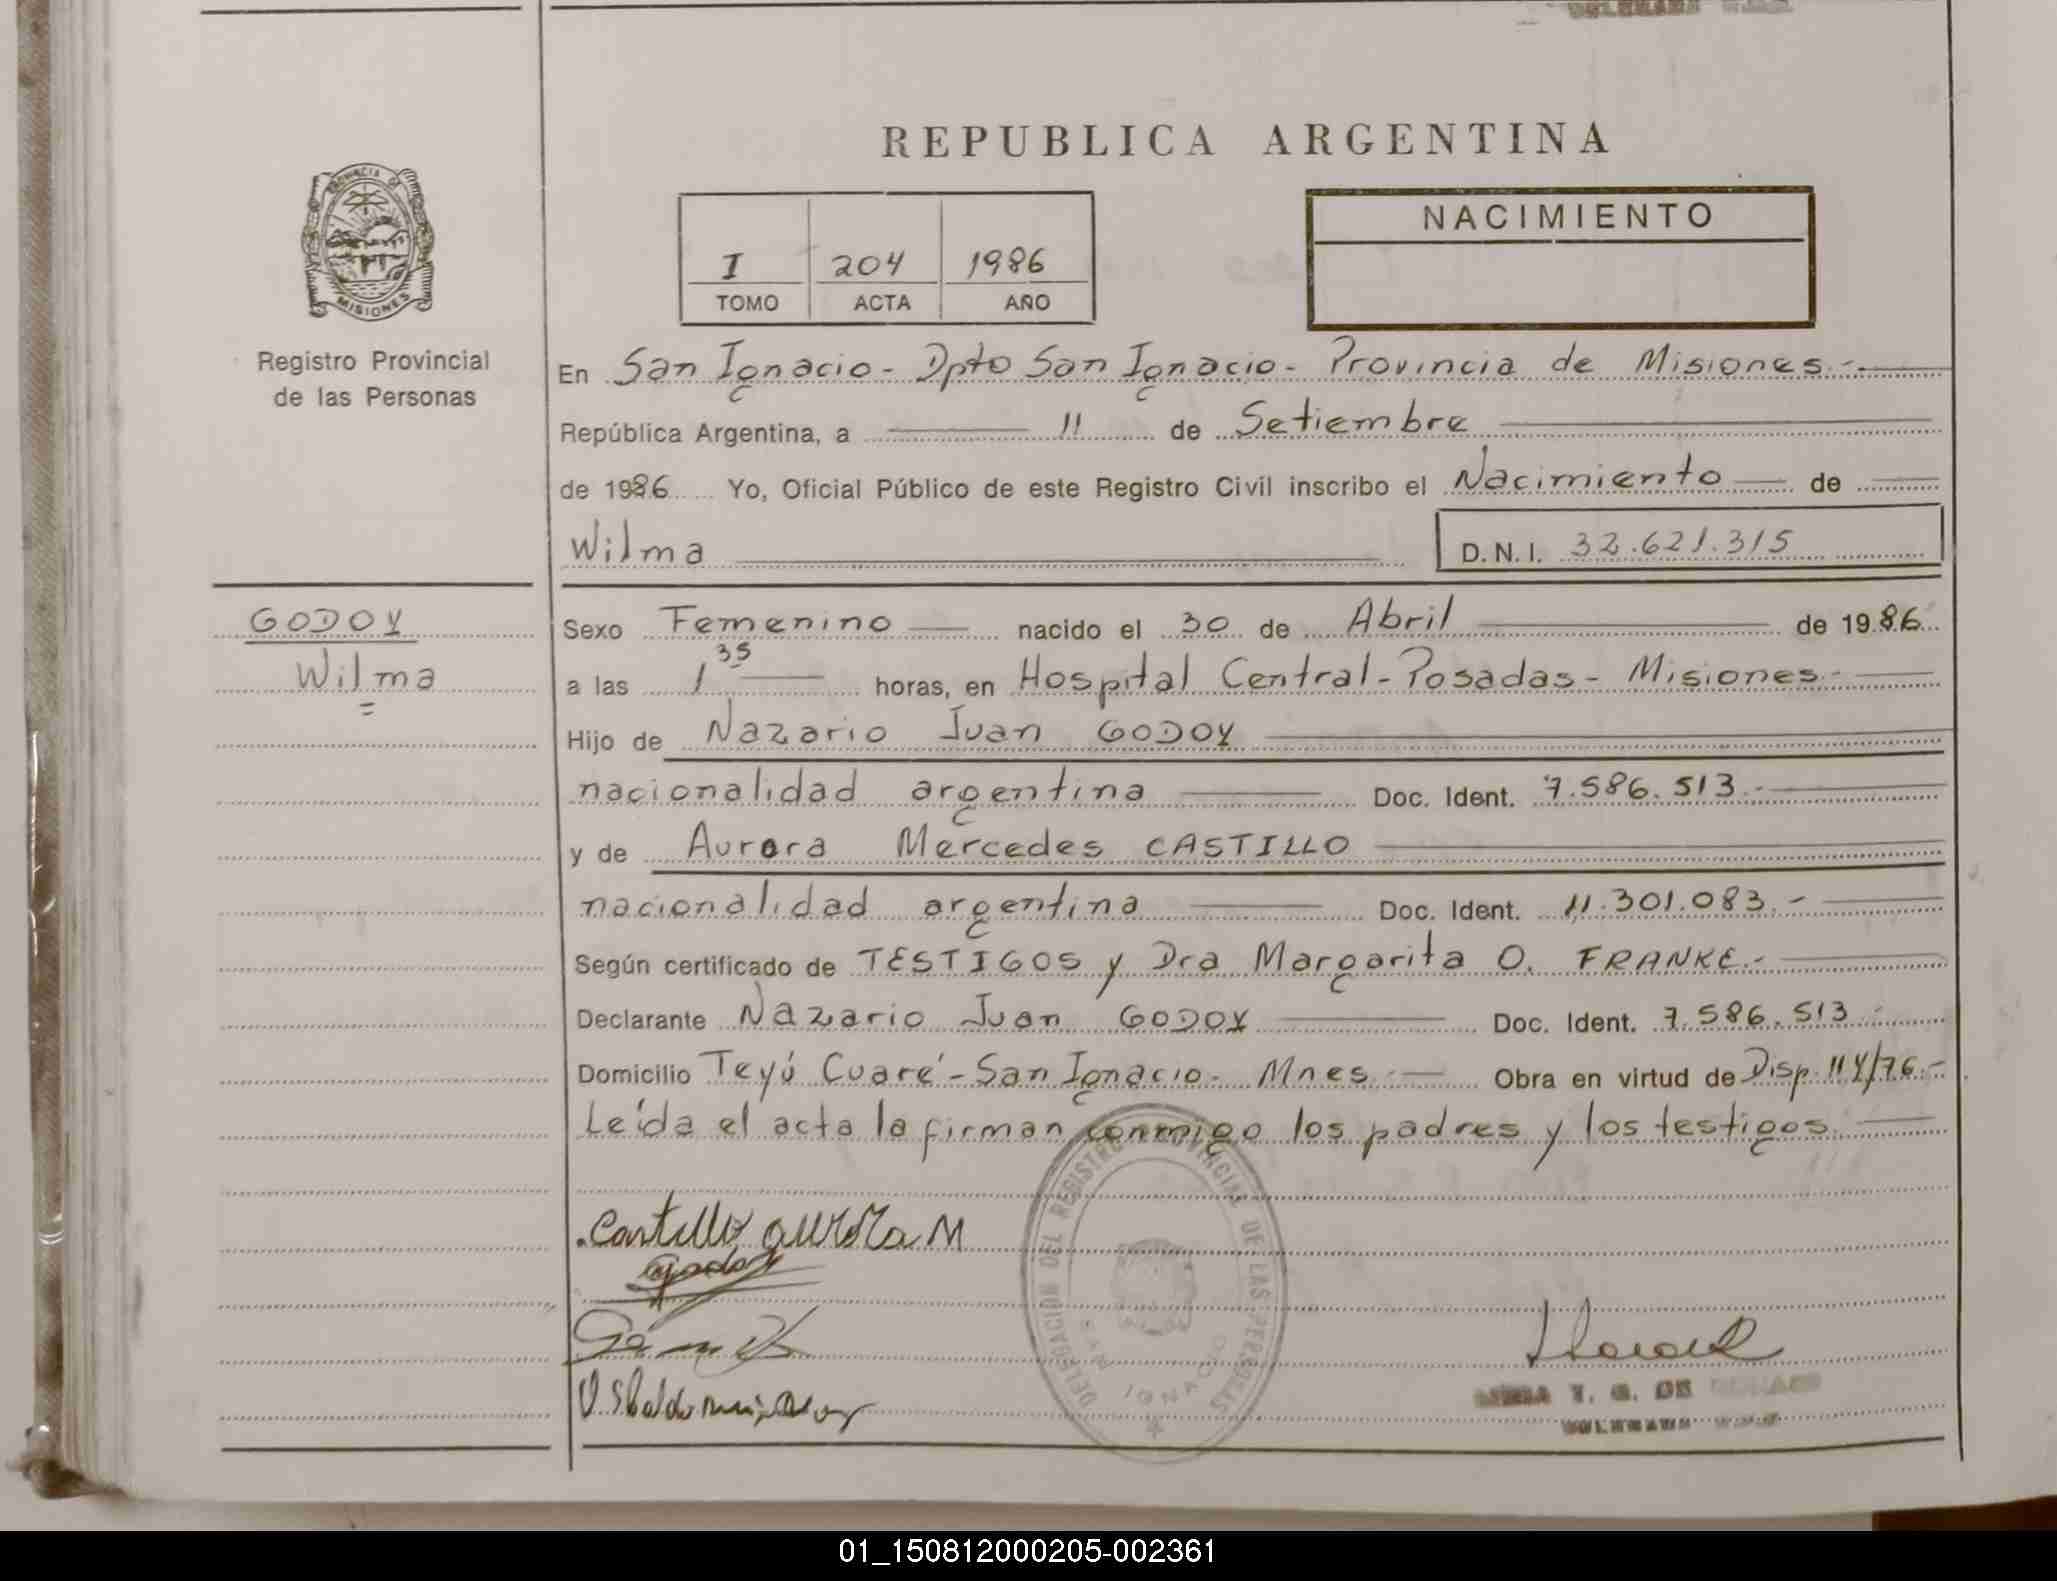 REPUBLICA ARGENTINA
PROVINCIA DE
MISIONES
Registro Provincial
de las Personas
I 204 1986
TOMO ACTA AÑO
NACIMIENTO
En San Ignacio - Dpto San Ignacio - Provincia de Misiones.-
República Argentina, a 11 de Setiembre
de 1986 Yo, Oficial Público de este Registro Civil inscribo el Nacimiento de
Wilma D.N.I. 32.621.315
GODOY
Wilma
Sexo Femenino nacido el 30 de Abril de 1986
a las 1 35 horas, en Hospital Central - Posadas - Misiones.-
Hijo de Nazario Juan GODOY
nacionalidad argentina Doc. Ident. 7.586.513.-
y de Aurora Mercedes CASTILLO
nacionalidad argentina Doc. Ident. 11.301.083.-
Según certificado de TESTIGOS y Dra Margarita O. FRANKE.-
Declarante Nazario Juan GODOY Doc. Ident. 7.586.513.-
Domicilio Teyú Cuaré - San Ignacio - Mnes.- Obra en virtud de Disp. 114/76.-
Leída el acta la firman conmigo los padres y los testigos.
DELEGACIÓN DEL REGISTRO PROVINCIAL DE LAS PERSONAS
SAN IGNACIO
Castillo Aurora M
Godoy
01_150812000205-002361